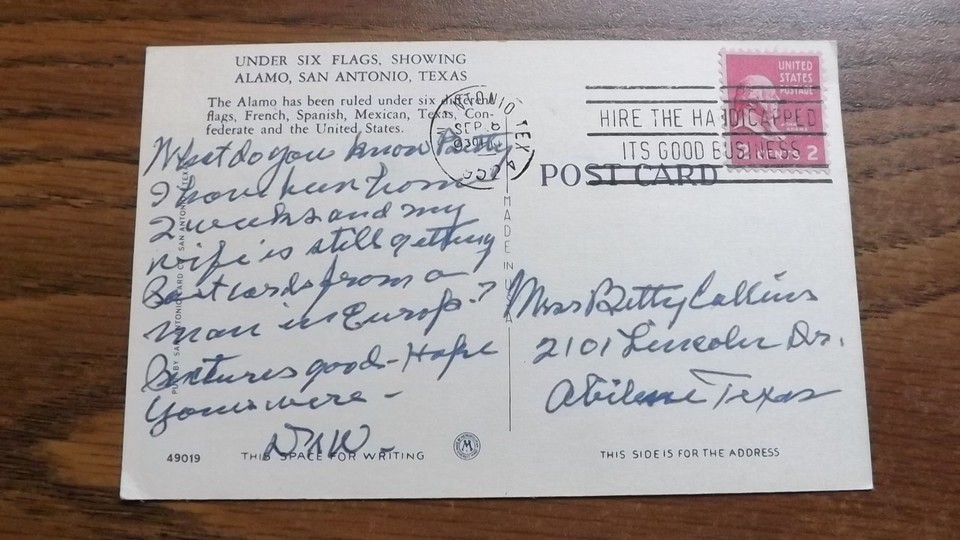 UNDER SIX FLAGS, SHOWING
ALAMO, SAN ANTONIO, TEXAS
The Alamo has been ruled under six different
flags, French, Spanish, Mexican, Texas, Con-
federate and the United States.
What do you know Betty
I have been home
2 weeks and my
wife is still getting
Post cards from a
man in Europ-?
Pictures good - Hope
yours were -
49019
THIS SPACE FOR WRITING
SAN ANTONIO CARD
MADE IN USA
ANTONIO, TEX
SEP 8
HIRE THE HANDICAPPED
ITS GOOD BUSINESS
UNITED
STATES
POSTAGE
2 CENTS 2
POST CARD
Miss Betty Collins
2101 Lincoln Dr.
Abilene Texas
THIS SIDE IS FOR THE ADDRESS